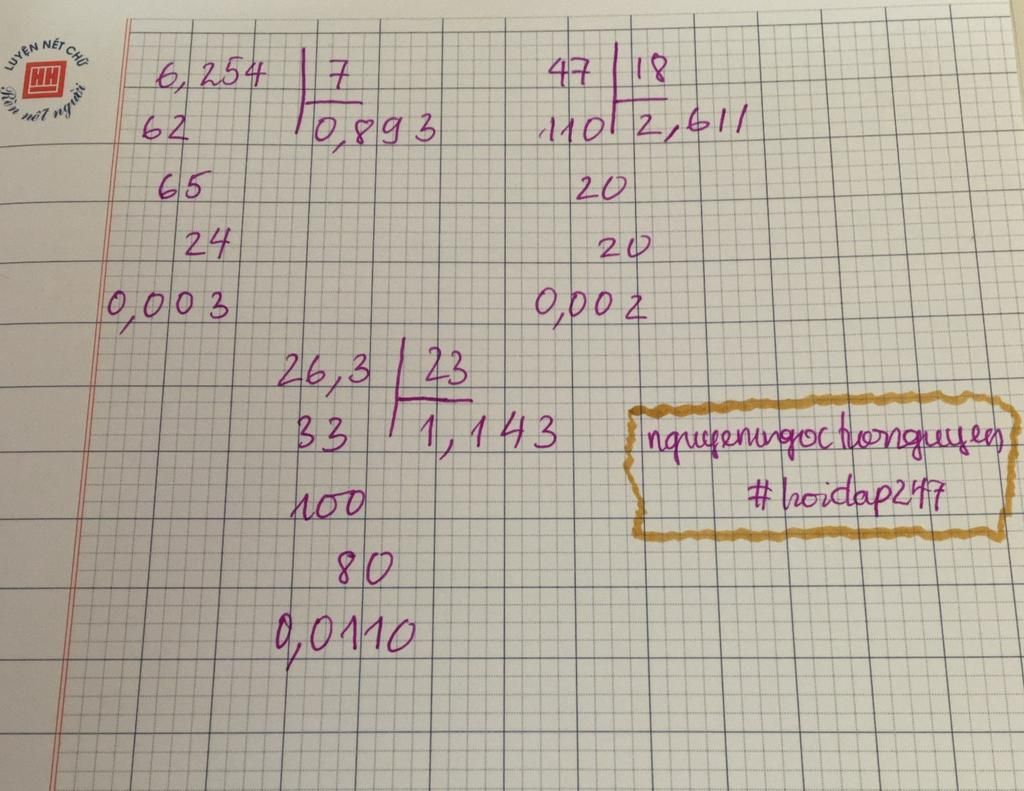 LUYỆN NÉT CHỮ
HH
Rèn nết người
6,254 7
62 0,893
65
24
0,003
47 18
110 2,611
20
20
0,002
26,3 23
33 1,143
100
80
0,0110
#hoidap247